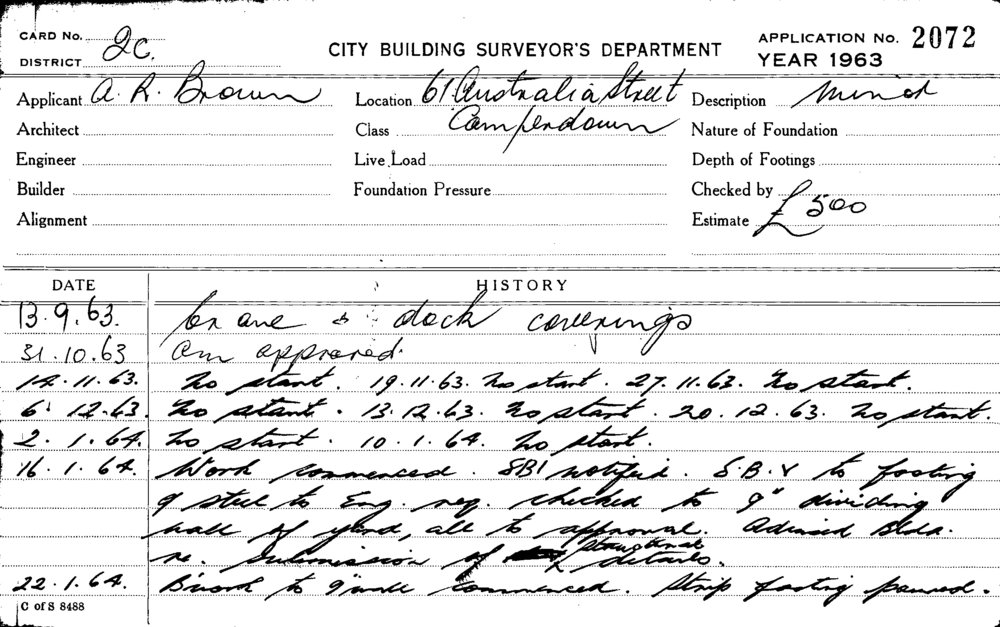 CARD No. 2C.
DISTRICT
CITY BUILDING SURVEYOR'S DEPARTMENT
APPLICATION No. 2072
YEAR 1963
Applicant A. R. Brown
Location 61 Australia Street
Description Minor
Architect
Class Camperdown
Nature of Foundation
Engineer
Live Load
Depth of Footings
Builder
Foundation Pressure
Checked by
Alignment
Estimate £500
DATE HISTORY
13.9.63. Crane & dock coverings
31.10.63 Om approved.
14.11.63. No start. 19.11.63. No start. 27.11.63. No start.
6.12.63. No start. 13.12.63. No start. 20.12.63. No start.
2.1.64. No start. 10.1.64. No start.
16.1.64. Work commenced. SBI notified. S.B.Y to footing
& steel to Eng. req. checked to 9" dividing
wall of yard, all to approval. Advised Bldr.
re. submission of structural details.
22.1.64. B'work to 9" wall commenced. Strip footing poured.
C of S 8488